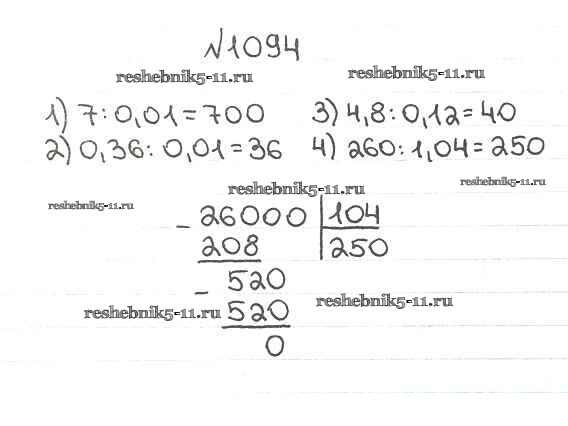 №1094
reshebnik5-11.ru reshebnik5-11.ru
1) 7:0,01=700 3) 4,8:0,12=40
2) 0,36:0,01=36 4) 260:1,04=250
reshebnik5-11.ru reshebnik5-11.ru
reshebnik5-11.ru
- 26000 | 104
208 | 250
- 520
520
reshebnik5-11.ru reshebnik5-11.ru
0